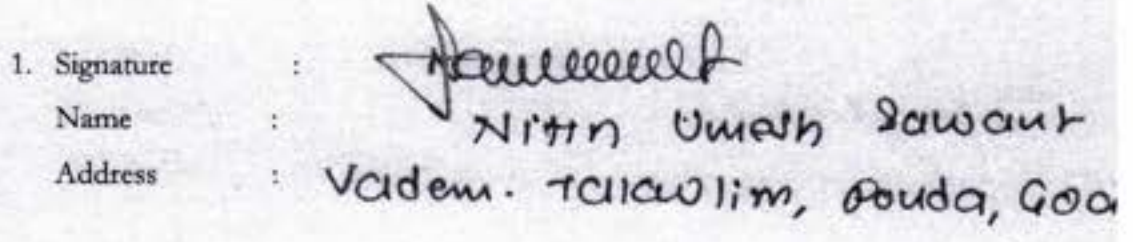 1. Signature :
Name : Nitin Umesh Sawant
Address : Vadem. Tallawlim, Ponda, Goa